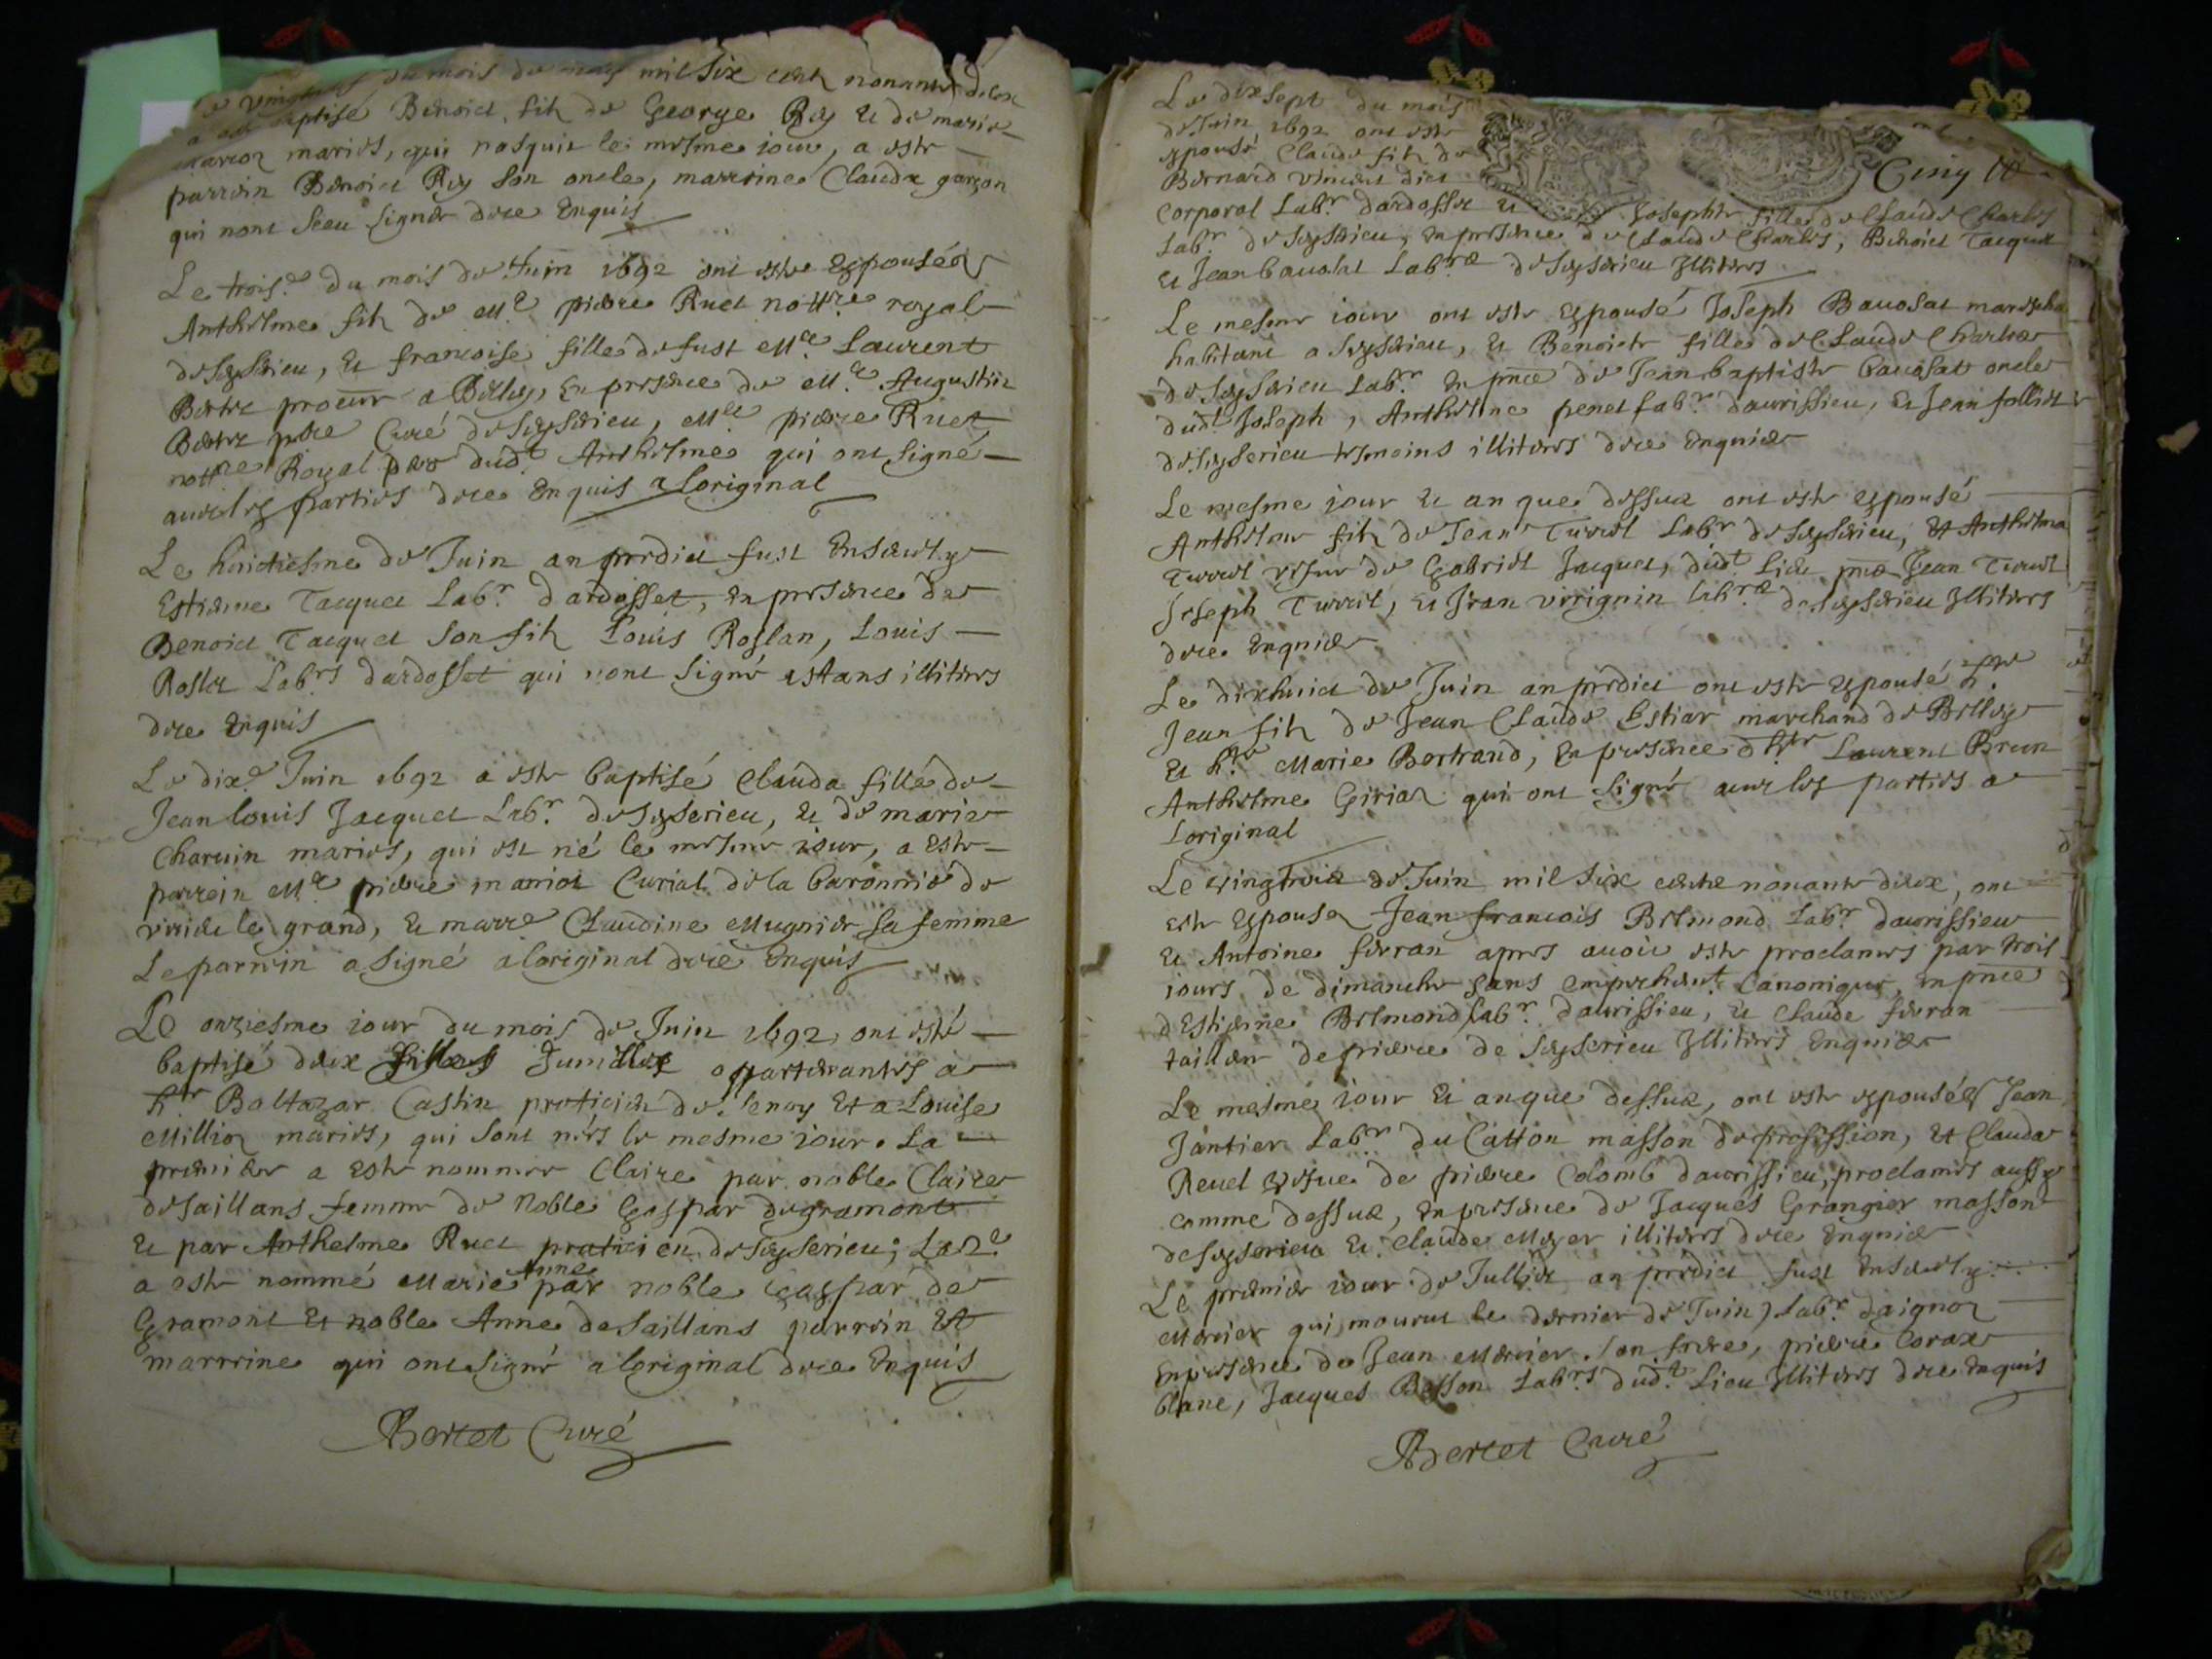 du mois de may mil six cent nonante deux
a esté baptisé Benoict fils de George Rey et de marie
mariés, qui nasquit le mesme iour, a esté
parrein Benoict Rey son oncle, marreine Claudx garçon
qui nont sceu signer dece enquis
Le trois.e du mois de Juin 1692 ont este espousés
Anthelme fils de M.e pierre Ruet nott.re royal
de seyserieu, et francoise fille de fust M.e Laurent
procur a Belley, en presence de M.e Augustin
pbre Curé de seyserieu, M.e pierre Ruet
nott.re Royal pere dud.t Anthelme qui ont signé
avec les parties dece enquis a loriginal
Le huictiesme de Juin an predict fust ensevely
Estienne Jacquet Lab.r dardosset, en presence de
Benoict Jacquet son fils Louis Roslan, Louis
Lab.rs dardosset qui nont signé estans illiteres
dece enquis
Le dix.e Juin 1692 a este baptisé Clauda fille de
Jean louis Jacquet Lab.r de seyserieu, et de marie
Charvin mariés, qui est né le mesme iour, a esté
parrein M.e pierre maniot Curial de la baronnie de
virieu le grand, et marre Claudine Mugnier sa femme
Le parrein a signé a loriginal dece enquis
Le onziesme iour du mois de Juin 1692 ont esté
baptisé deux filles Jumelles appartenantes a
h.te Baltazar Castin praticien de Cenoy et a Louise
Million mariés, qui sont nées le mesme iour. La
premiere a esté nommée Claire par noble Claire
desaillans femme de Noble Gaspar degramont
et par Anthelme Ruet praticien de seyserieu; La 2.e
a esté nommé Marie Anne par noble Gaspar de
Gramont et noble Anne desaillans parrein et
marreine qui ont signé a loriginal dece enquis
Bertet Curé
Le dix sept du mois
de Juin 1692 ont esté
espousé Claude fils de
Bernard vincent dict
Cinq
corporal Lab.r dardosset et Josephte fille de Claude Charles
lab.r de seyserieu, en presence de Claude Charles, Benoict Jacquet
et Jean bavosat Lab.re de seyserieu Illiteres
Le mesme iour ont esté espousé Joseph Bavosat
habitant a seyserieu, et Benoicte fille de Claude Charles
de seyserieu Lab.r en pnce de Jean baptiste bavosat oncle
dud.t Joseph, Anthelme penet Lab.r daurissieu, et Jean
de seyserieu tesmoins illiteres dece enquiez
Le mesme iour et an que dessux ont esté espousé
Anthelme fils de Jean Turrel Lab.r de seyserieu, et Anthelma
Turrel vefve de Gabriel Jacquet, dud.t Lieu pnce Jean Turrel
Joseph Turrel, et Jean virignin lab.re de seyserieu Illiteres
dece enquiez
Le dixhuict de Juin an predict ont esté espousé h.te
Jean fils de Jean Claude Estiar marchand de Belley
et h.te Marie Bertrand, en presence d h.te Laurent Brun
Anthelme Giriaz qui ont signé avec les parties a
Loriginal
Le vingtroix de Juin mil six cent nonante deux, ont
esté espousez Jean francois Belmond Lab.r daurissieu
et Antoine ferran apres avoir esté proclamés par trois
iours de dimanche sans empechem.t Canonique, en pnce
dEstienne Belmond Lab.r daurissieu, et Claude ferran
tailleur de pierre de seyserieu Illiteres enquiez
Le mesme iour et an que dessux, ont esté espousés Jean
Jantier Lab.r du Catton masson de profession, et Clauda
Revel vefve de pierre Colomb daurissieu, proclamés aussy
comme dessux, en presence de Jacques Grangier masson
de seyserieu et Claude Moyer illiteres dece enquiez
Le premier iour de Jullet an predict fust ensevely
Mercier qui mourut le dernier de Juin, Lab.r daignoz
en presence de Jean Mercier son frere, pierre Corax
blanc, Jacques Besson Lab.rs dud.t Lieu Illiteres dece enquis
Bertet Curé